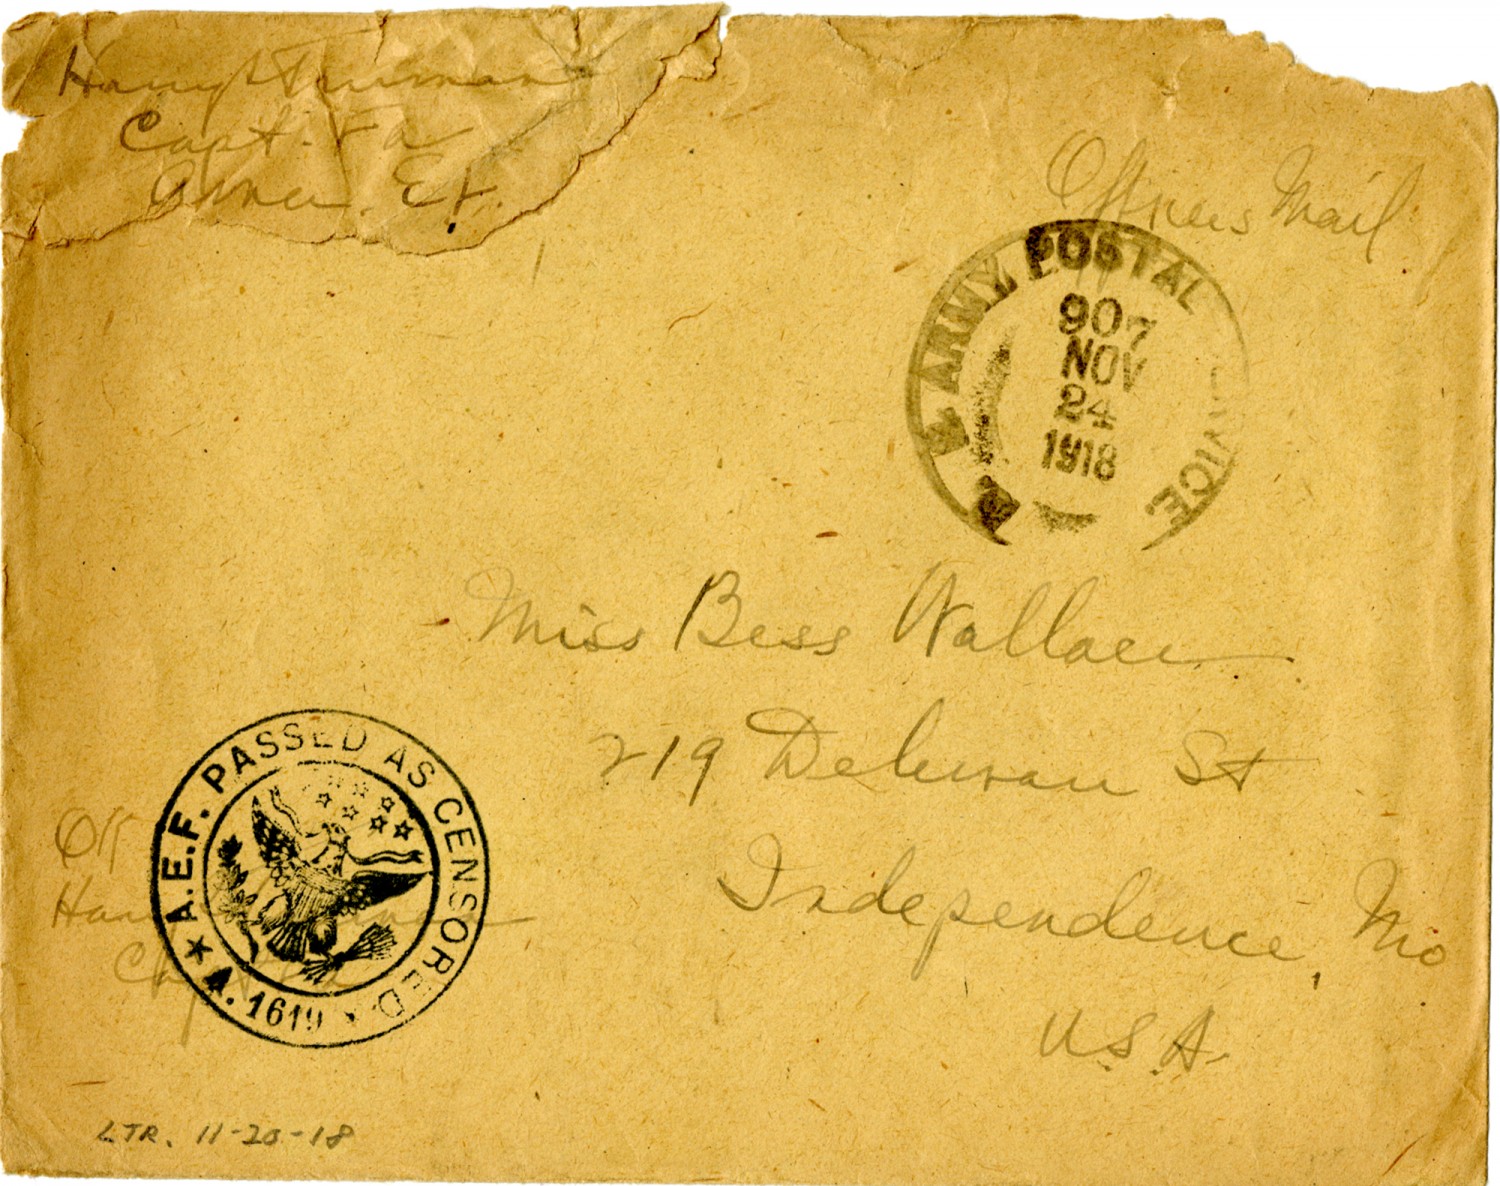 Harry S Truman
Capt. FA
Amer. E.F.
Officers Mail
ARMY POSTAL SERVICE.
907
NOV
24
1918
Miss Bess Wallace
219 Delaware St
Independence, Mo
U.S.A.
A.E.F. PASSED AS CENSORED
A. 1619
Off
Harry
Capt FA
LTR. 11-20-18